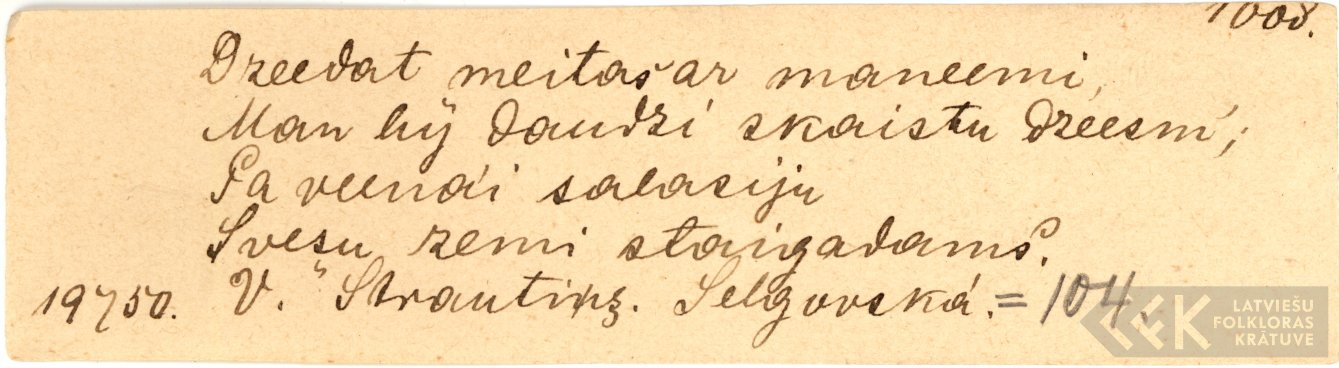 1008.
Dzeedat meitas ar maneemi,
Man bij daudzi skaistu dzeesm';
Pa veenai salasiju
Svesu zemi staigadams.
19750. V. Strautiņz. Selgovská. = 104.
LATVIEŠU
FOLKLORAS
KRĀTUVE